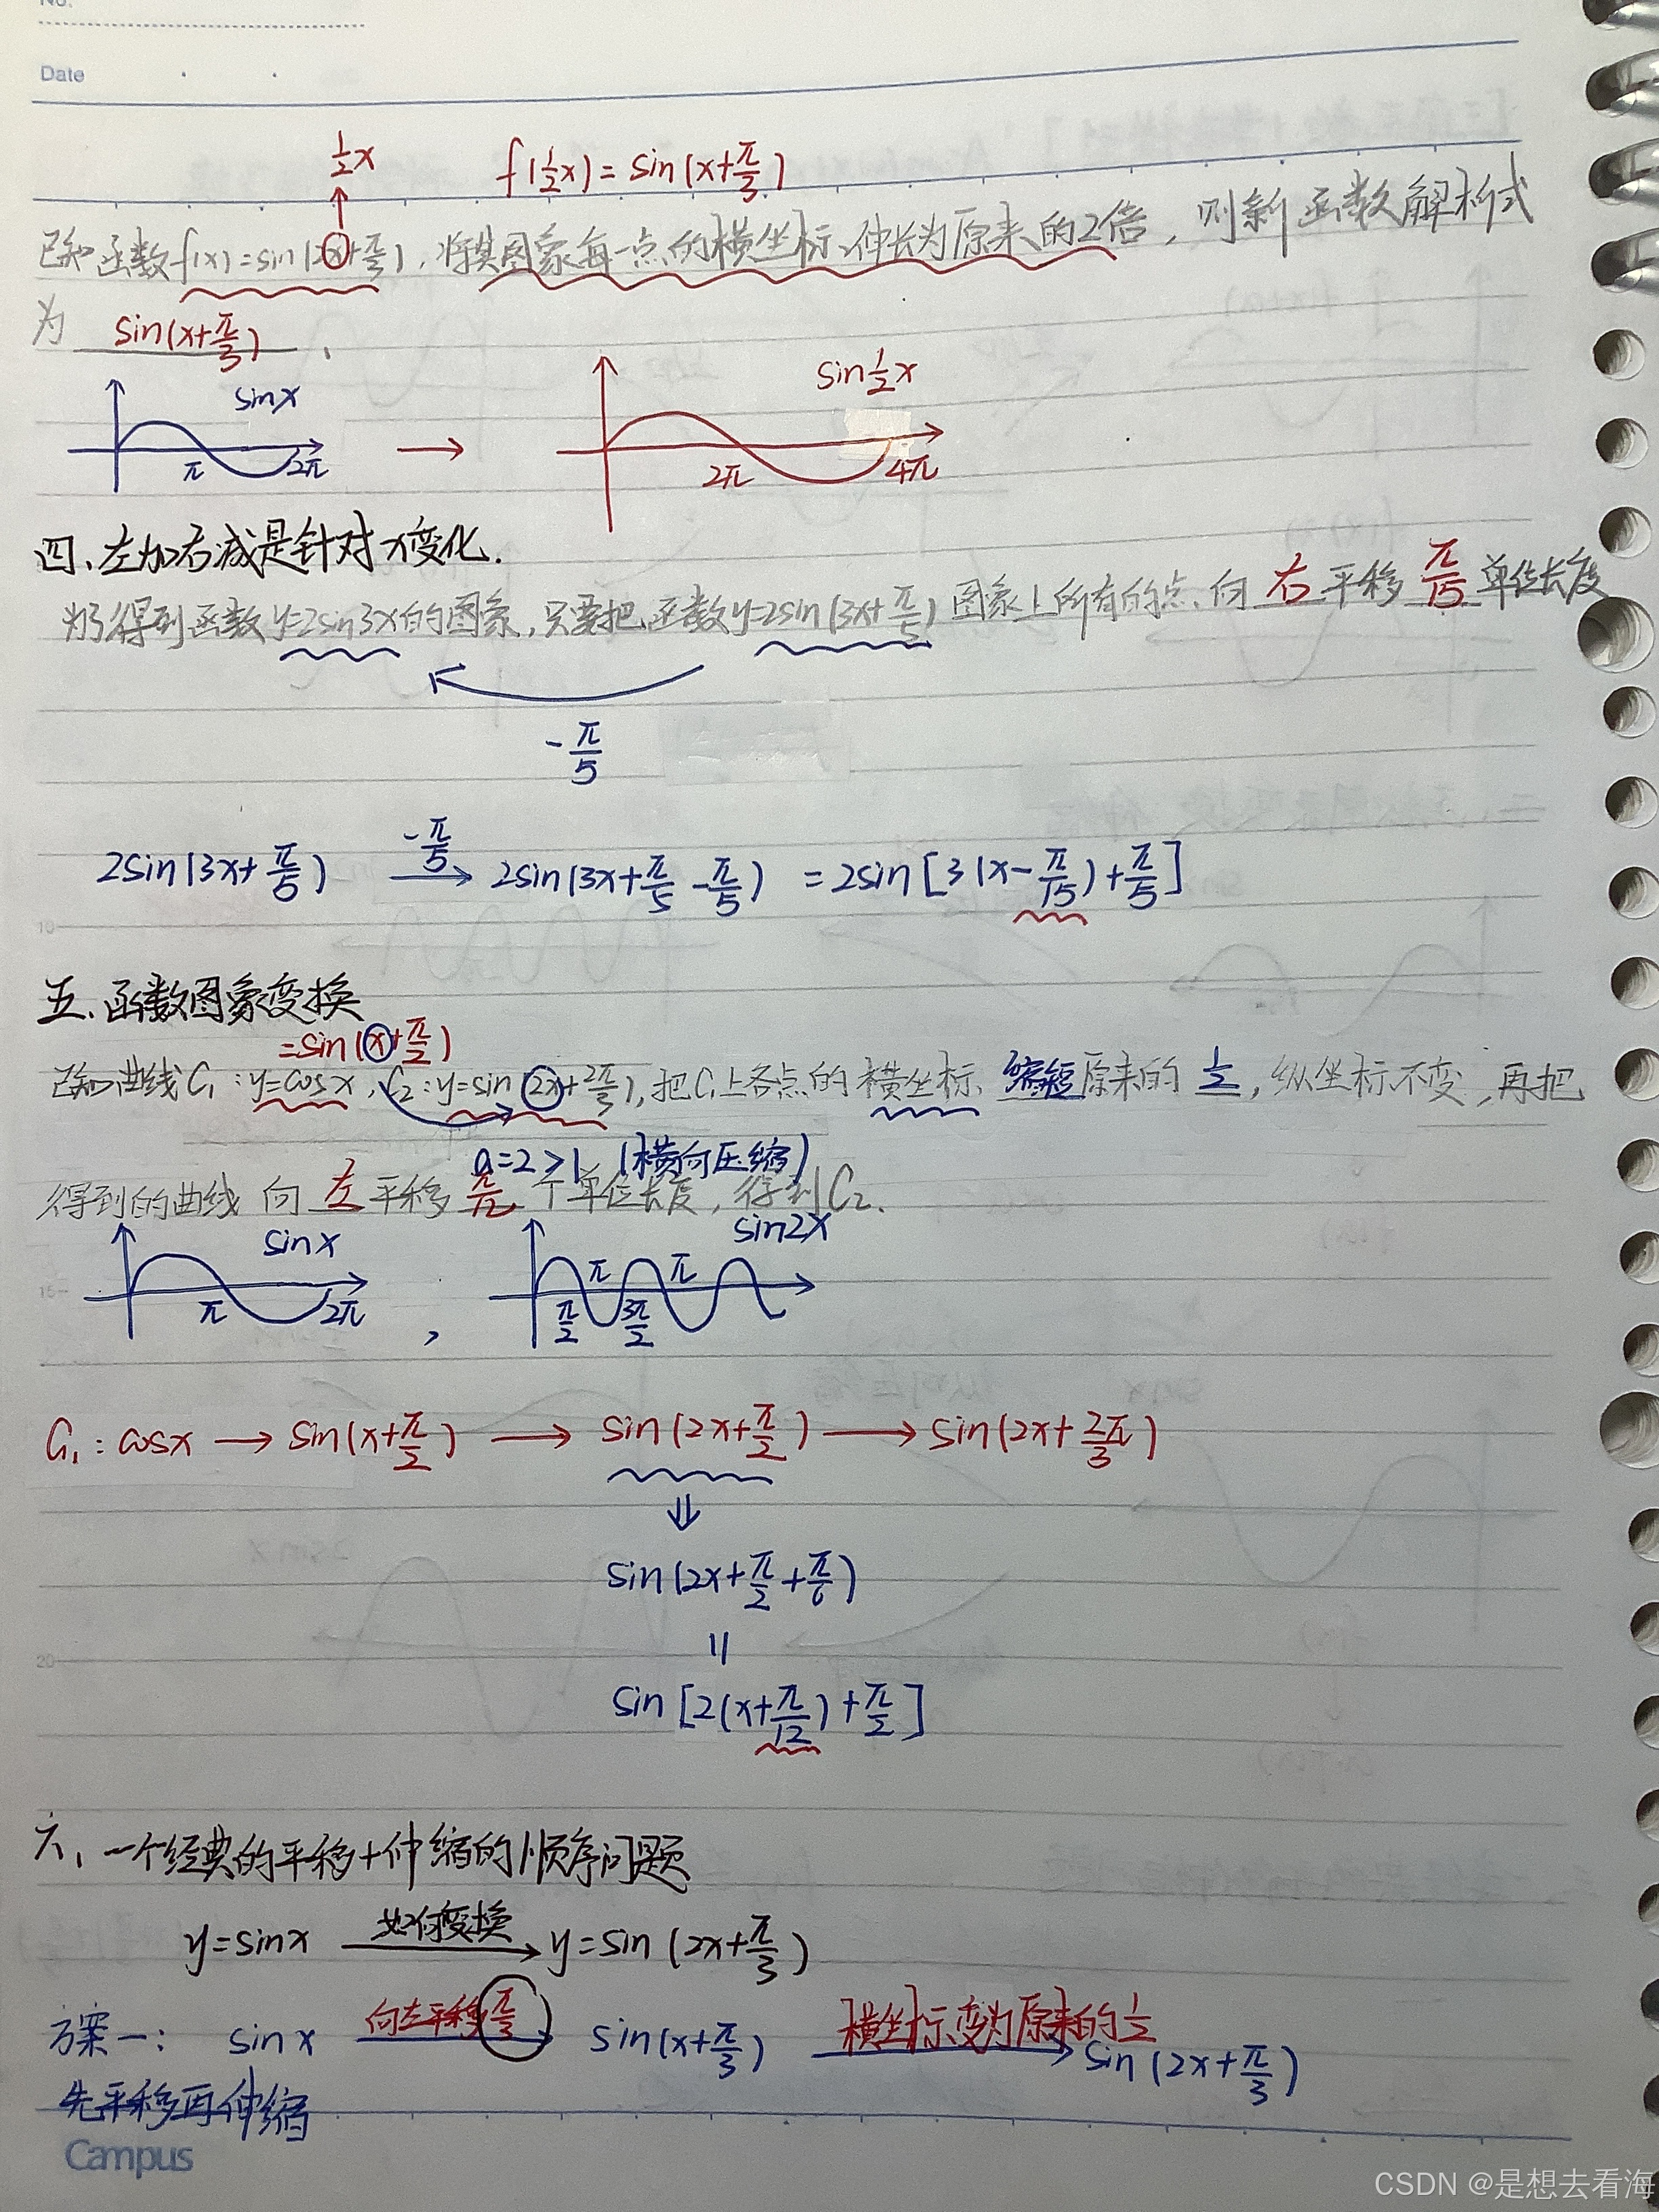 No.
Date
½x f(½x)=sin(x+π/3)
已知函数f(x)=sin(2x+π/3),将其图象每一点的横坐标伸长为原来的2倍,则新函数解析式
为 sin(x+π/3).
sinx → sin½x
π 2π 2π 4π
四、左加右减是针对x变化.
为了得到函数y=2sin3x的图象,只要把函数y=2sin(3x+π/5)图象上所有的点向右平移π/15单位长度
-π/5
2sin(3x+π/5) -π/5→ 2sin(3x+π/5-π/5) =2sin[3(x-π/15)+π/5]
10
五、函数图象变换
=sin(x+π/2)
已知曲线C₁:y=cosx,C₂:y=sin(2x+2π/3),把C₁上各点的横坐标缩短原来的½,纵坐标不变,再把
a=2>1 (横向压缩)
得到的曲线向左平移π/12个单位长度,得到C₂.
sinx sin2x
15
π 2π , π/2 π 3π/2 π
C₁:cosx→sin(x+π/2)→sin(2x+π/2)→sin(2x+2π/3)
⇓
sin(2x+π/2+π/6)
20
=
sin[2(x+π/12)+π/2]
六、一个经典的平移+伸缩的顺序问题
y=sinx 如何变换→ y=sin(2x+π/3)
方案一: sinx 向左平移π/3→ sin(x+π/3) 横坐标变为原来的½→ sin(2x+π/3)
先平移再伸缩
Campus
CSDN @是想去看海